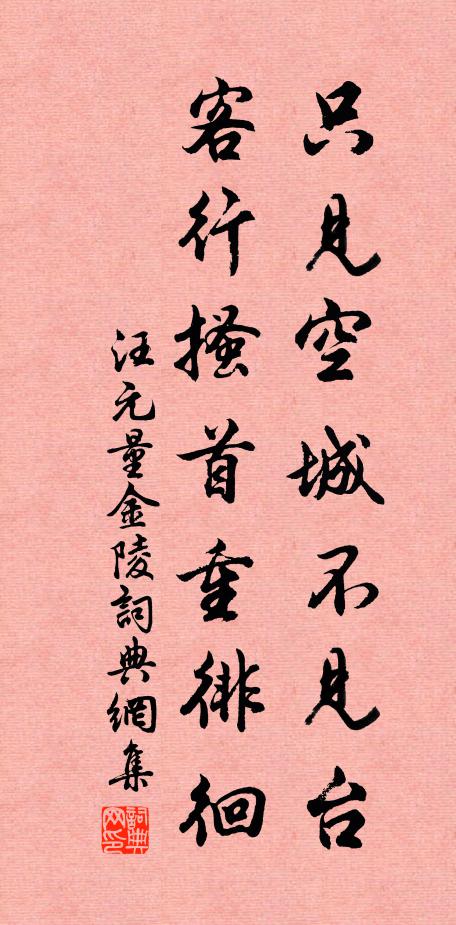 只見空城不見台
客行搔首重徘徊
汪元量金陵詞典網集
詞典网印